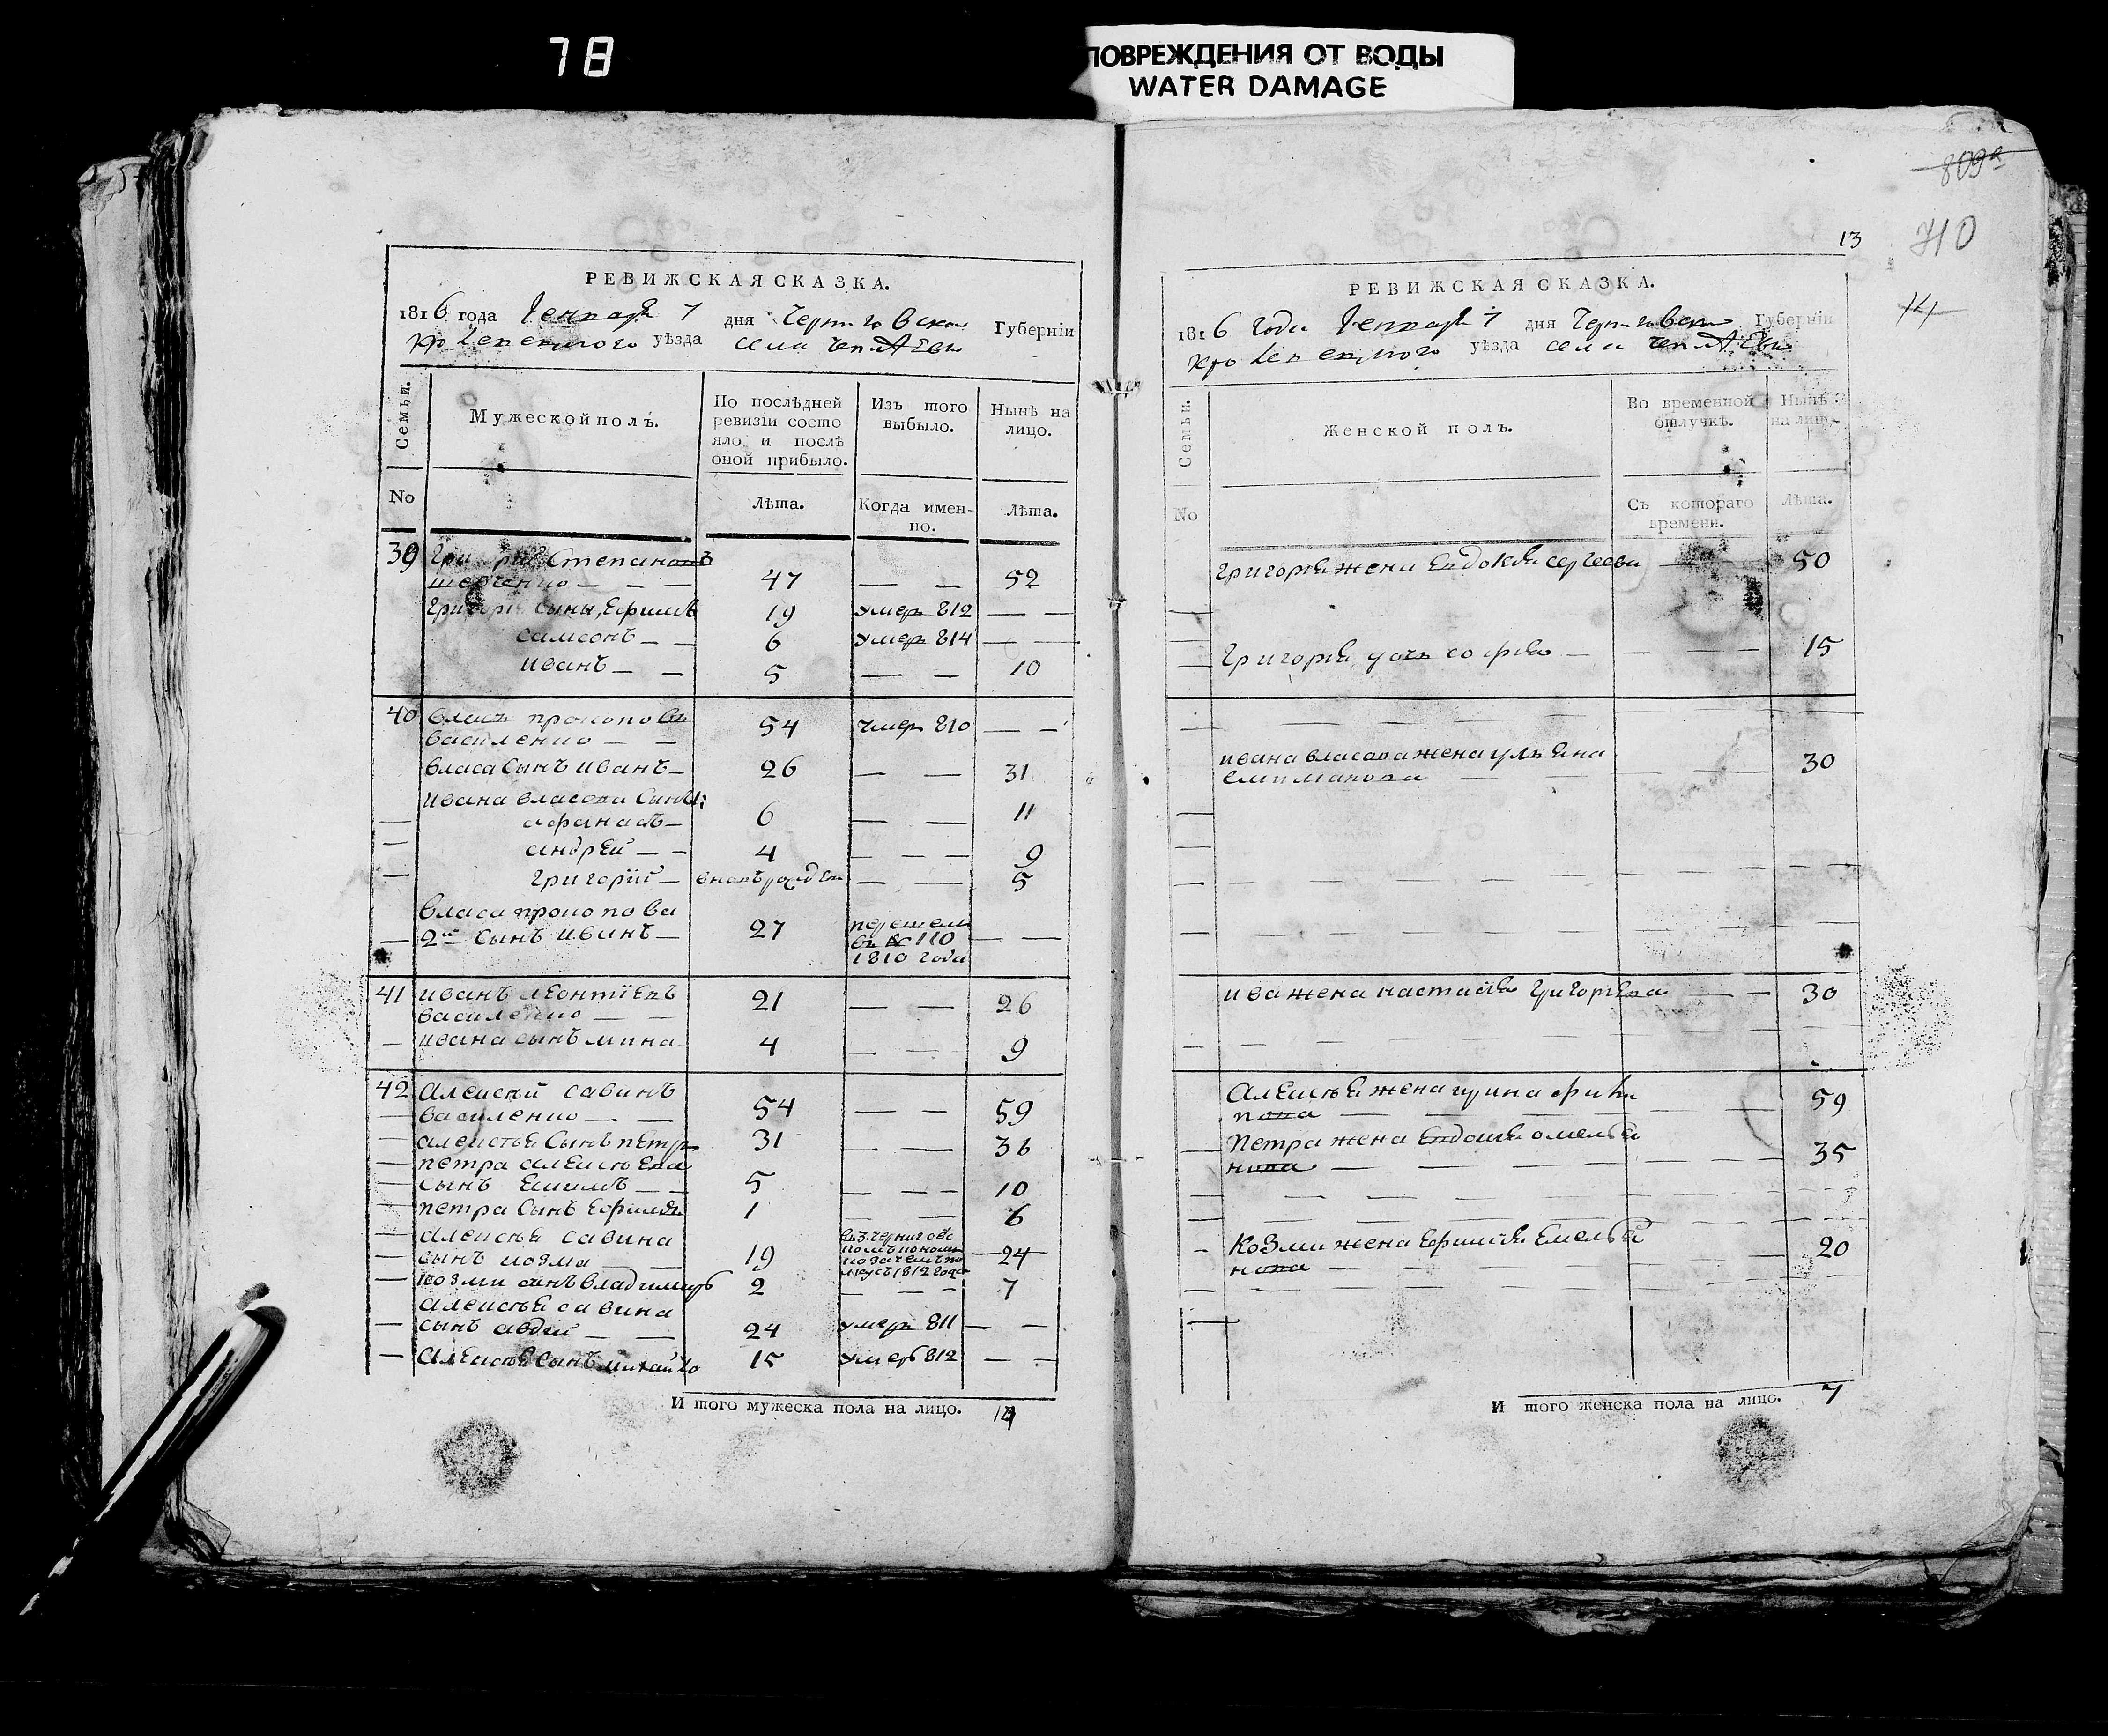 78
ПОВРЕЖДЕНИЯ ОТ ВОДЫ
WATER DAMAGE
РЕВИЖСКАЯ СКАЗКА.
1816 года Генваря 7 дня Черниговской Губернїи
уѣзда села
Семьи.
Мужеской полъ.
По послѣдней ревизїи состо
яло и послѣ
оной прибыло.
Изъ того
выбыло.
Нынѣ на
лицо.
No
Лѣта.
Когда имен-
но.
Лѣта.
39 Степановъ
шевченко — — 47 — — 52
сыны, Ефимъ 19 умеръ 812 — —
самсонъ — — 6 умеръ 814 — —
иванъ — — 5 — — 10
40 власъ прокоповъ 54 умеръ 810 — —
василенко — —
власа сынъ иванъ — 26 — — 31
ивана власова сыны:
афанасъ — 6 — — 11
андрей — — 4 — — — 9
григорїй — вновърожден — — 5
власа прокопова
2й сынъ иванъ — 27 перешел
въ № 110 — —
1810 года
41 иванъ леонтїевъ 21 — — 26
василенко — —
ивана сынъ мина 4 — — 9
42 Алексѣй савинъ
василенко — — 54 — — 59
алексѣя сынъ петръ 31 — — 36
петра алексѣева
сынъ — — 5 — — — 10
петра сынъ Ефимъ 1 — — 6
алексѣя савина
сынъ козма 19 1812 года 24
козми сынъ владимиръ 2 — — — 7
алексѣя савина
сынъ авдей — — 24 умеръ 811 — —
Алексѣя сынъ михайло 15 умеръ 812 — —
И того мужеска пола на лицо.
809а
13
710
14
РЕВИЖСКАЯ СКАЗКА.
1816 года Генваря 7 дня Черниговской Губернїи
уѣзда села
Семьи.
Женской полъ.
Во временной
отлучкѣ.
Нынѣ
на лицо.
No
Съ котораго
времени.
Лѣта.
григорїя жена Евдокїя сергеева 50
григорїя дочь софїя — — — — 15
ивана власова жена ульяна 30
ива жена настасїя григорїева — — 30
Алексѣя жена 59
Петра жена Евдокїя омелья
нова — — — 35
Козми жена Ефимїя Емелья
нова — — — 20
И того женска пола на лицо. 7